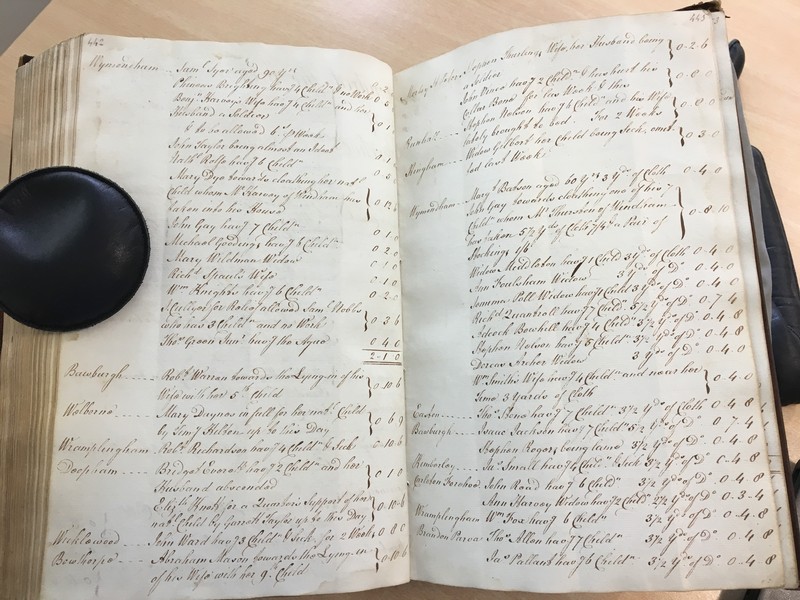 442
Wymondham - Saml. Tyar aged 90 Yrs
having 4 Childn & no Work
Benj. Harvoy's Wife havg 4 Childn and her
Husband a Soldier
& to be allowed 6 pr Week
John Taylor being almost an Ideot
Nathl. Rolfe havg 6 Childn
Mary Dye towards cloathing her natl.
Child whom Mr. Harvey of Windham has
taken into his House
John Gay havg 7 Childn
Michael Gooding havg 8 Childn
Mary Wildman Widow
Richd. Wife
Wm. Knights havg 6 Childn
for Relief allowed Saml. Hobbs
who has 8 Childn and no Work 0 3 6
Thos. Green Junr. havg the Ague 0 4 0
2 1 0
Bawburgh - Robt. Warran towards the Lying in of his
Wife with her 5th. Child 0 10 6
Welborne - Mary Daynes in full for her natl. Child
by up to this Day 0 6 9
Wramplingham Robt. Richardson havg 4 Childn & Sick 0 10 6
Deopham - Bridget havg 2 Childn and her
Husband absconded 0 1 0
Elizth. Knot for a Quarter's Support of her
natl. Child by Garrett Tayler up to this Day 0 10 6
Wicklewood - John Ward havg 3 Childn & Sick for 2 Weeks
Bowthorpe - Abraham Mason towards the Lying-in
of his Wife with her 9th. Child 0 10 6
445
Wife, her Husband being
a Soldier 0 2 6
John havg 2 Childn & has hurt his
Collar Bone for last Week & this
Stephen Nelson havg 6 Childn and his Wife
lately brought to bed. For 2 Weeks
Widow Gilbert her Child being Sick, omit-
ted last Week 0 3 0
Hingham -
Mary Batson aged 60 Yrs 3 Yds of Cloth 0 4 0
Wymondham - John Gay towards cloathing one of his 7
Childn whom Mr. Thurston of Windham
has taken 5½ Yds of Cloth a Pair of
Stockings 1/6 0 8 10
Widow Middleton havg 1 Child 3 Yds of Cloth 0 4 0
Ann Foulsham Widow 3 Yds of Do. 0 4 0
Jemima Poll Widow havg 1 Child 3 Yds of Do. 0 4 0
Richd. Quantrell havg 7 Childn 5½ Yds of Do. 0 7 4
havg 4 Childn 3½ Yds of Do. 0 4 8
Stephen Nelson havg 6 Childn 3½ Yds of Do. 0 4 8
Dorcas Archer Widow 3 Yds of Do. 0 4 0
Wm. Smith's Wife havg 4 Childn and near her
Time 3 Yards of Cloth 0 4 0
Easton - Thos. havg 7 Childn 3½ Yds of Cloth 0 4 8
Bawburgh - Isaac Jackson havg 7 Childn 5½ Yds of Do. 0 7 4
Stephen Roger, being lame 3½ Yds of Do. 0 4 8
Kimberley - Jas. Small havg 6 Childn & Sick 3½ Yds of Do. 0 4 8
Carleton Forehoe John Rand havg 6 Childn 3½ Yds of Do. 0 4 8
Ann Harvey Widow havg 2 Childn 2½ Yds of Do. 0 3 4
Wramplingham Wm. Fox havg 6 Childn 3½ Yds of Do. 0 4 8
Brandon Parva Thos. Allen havg 7 Childn 3½ Yds of Do. 0 4 8
Jas. Pallant havg 6 Childn 3½ Yds of Do. 0 4 8